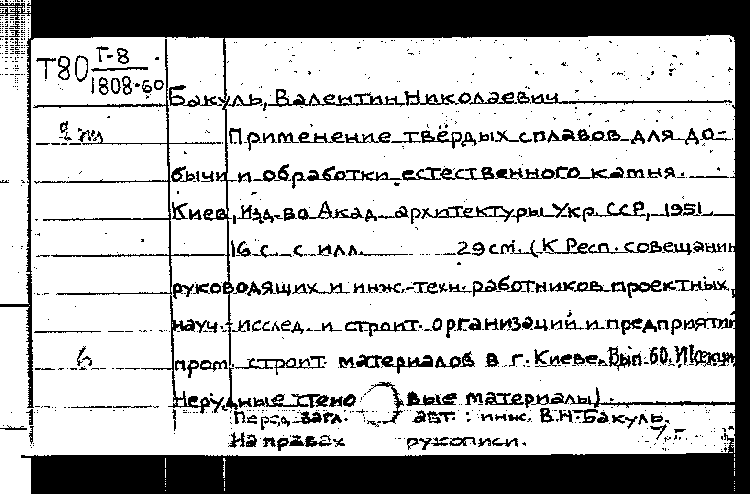 Т80 Г-8
1808-60
Бакуль, Валентин Николаевич
2 
Применение твёрдых сплавов для до-
бычи и обработки естественного камня.
Киев, Изд-во Акад. архитектуры Укр. ССР, 1951
16 с. с илл. 29 см. (К Респ. совещанию
руководящих и инж.-техн. работников проектных,
науч.-исслед. и строит. организаций и предприятий
б
пром. строит. материалов в г. Киеве. Вып. 60.
Нерудные стено вые материалы).
Перед загл. авт.: инж. В.Н. Бакуль.
На правах рукописи.